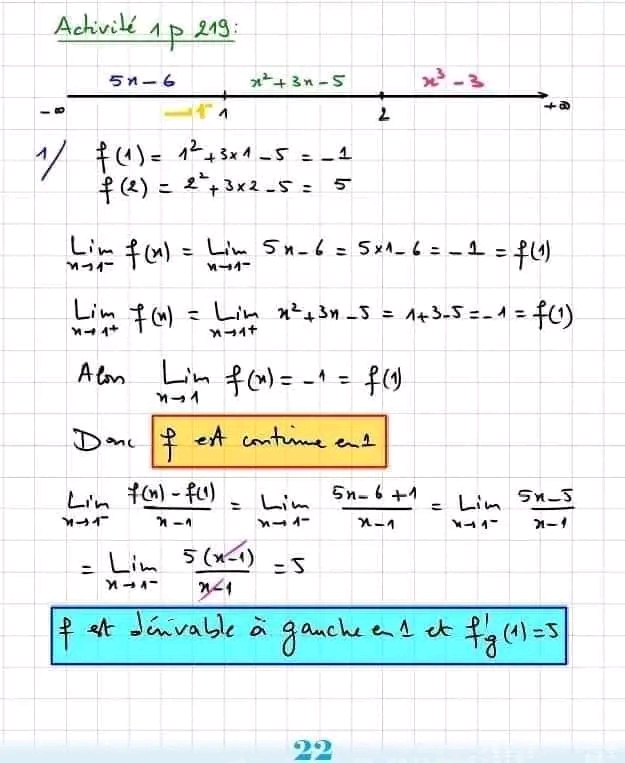 Activité 1 p 219:
5x-6 x²+3x-5 x³-3
-∞ 1 2 +∞
1/ f(1) = 1²+3×1-5 = -1
f(2) = 2²+3×2-5 = 5
Lim x→1⁻ f(x) = Lim x→1⁻ 5x-6 = 5×1-6 = -1 = f(1)
Lim x→1⁺ f(x) = Lim x→1⁺ x²+3x-5 = 1+3-5 = -1 = f(1)
Alors Lim x→1 f(x) = -1 = f(1)
Donc f est continue en 1
Lim x→1⁻ (f(x)-f(1))/(x-1) = Lim x→1⁻ (5x-6+1)/(x-1) = Lim x→1⁻ (5x-5)/(x-1)
= Lim x→1⁻ 5(x-1)/(x-1) = 5
f est dérivable à gauche en 1 et f'g(1)=5
22